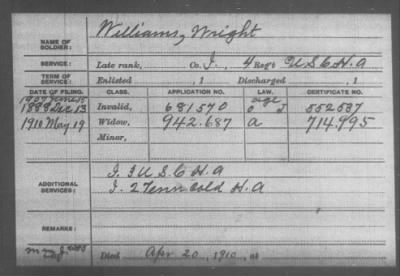 NAME OF SOLDIER: Williams, Wright
SERVICE: Late rank, Co. I, 4 Reg't U S C H A
TERM OF SERVICE: Enlisted , 1 Discharged , 1
DATE OF FILING. CLASS. APPLICATION NO. LAW. CERTIFICATE NO.
age
1888 Dec 13 Invalid, 681570 J 552537
1910 May 19 Widow, 942.687 a 714.995
Minor,
ADDITIONAL SERVICES: I. 3 U S. C H. A
I. 2 Tenn Cold H. A
REMARKS:
Died Apr 20, 1910, at